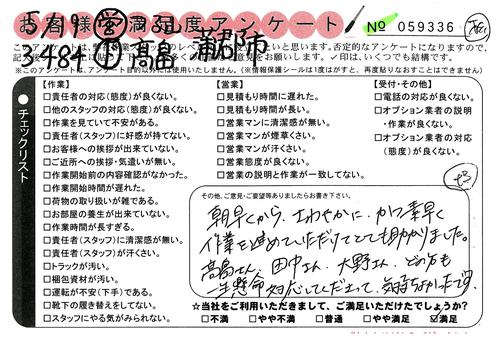 お客様満足度アンケート
№ 059336
5/19
3484 高畠 蒲郡市
このアンケートは、
※このアンケートは、アンケート目的以外には使用いたしません。(※情報保護シールは1度はがすと、再度貼りなおすことはできません)
● チェックリスト
【作業】
□責任者の対応(態度)が良くない。
□他のスタッフの対応(態度)が良くない。
□作業を見ていて不安がある。
□責任者(スタッフ)に好感が持てない。
□お客様への挨拶が出来ていない。
□ご近所への挨拶・気遣いが無い。
□作業開始前の内容確認がなかった。
□作業開始時間が遅れた。
□荷物の取り扱いが雑である。
□お部屋の養生が出来ていない。
□作業時間が長すぎる。
□責任者(スタッフ)に清潔感が無い。
□責任者(スタッフ)が汗くさい。
□トラックが汚い。
□梱包資材が汚い。
□運転が不安(下手)である。
□靴下の履き替えをしてない。
□スタッフにやる気がみられない。
【営業】
□見積もり時間に遅れた。
□見積もり時間が長い。
□営業マンに清潔感が無い。
□営業マンが煙草くさい。
□営業マンが汗くさい。
□営業態度が良くない。
□営業の説明と作業が一致してない。
【受付・その他】
□電話の対応が良くない。
□オプション業者の説明
・作業が良くない。
□オプション業者の対応
(態度)が良くない。
その他、ご意見・ご要望等ありましたらお書き下さい。
朝早くから、さわやかに、かつ素早く
作業を進めていただけてとても助かりました。
高畠さん 田中さん、大野さん、どの方も
一生懸命対応してくださって、気持ちよかったです。
☆当社をご利用いただきまして、ご満足いただけたでしょうか?
□不満 □やや不満 □普通 □やや満足 ☑満足